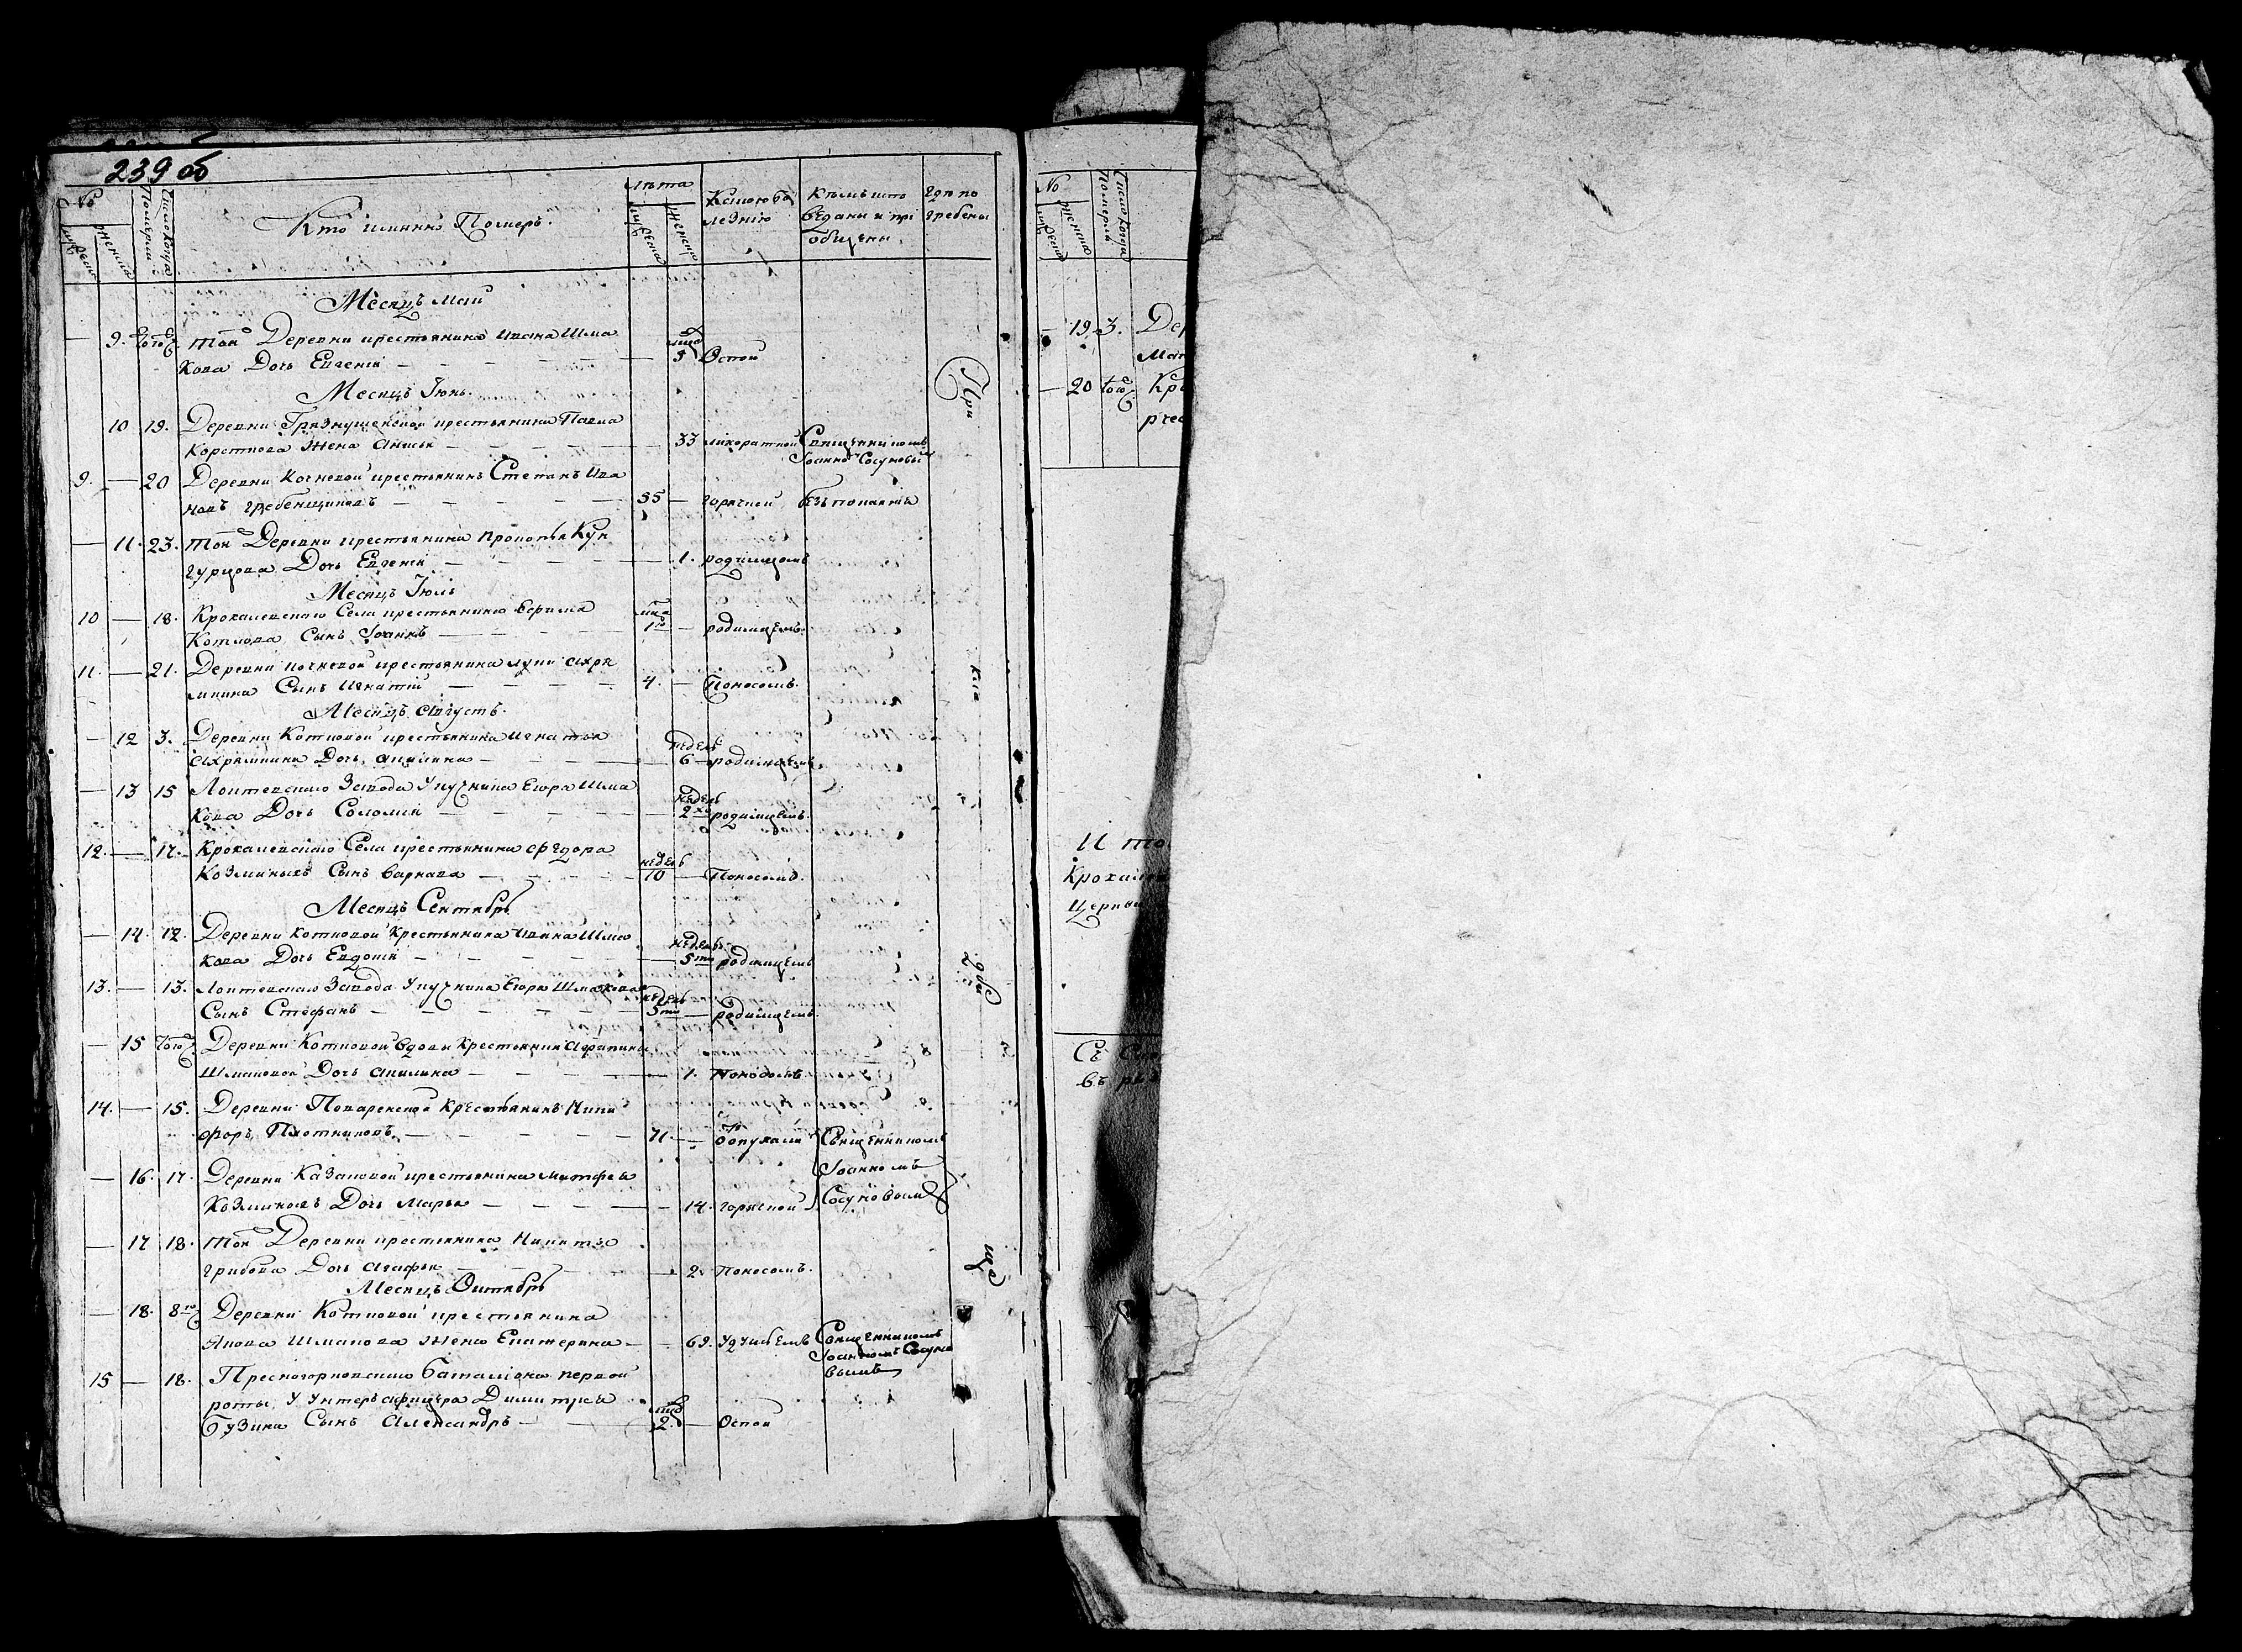 239 об
№ муж ческ женска
Число когда померли
Кто имянно Померъ.
лѣта муж ческа женска
Какою бо
лезнію
Кѣмъ испо
вѣданы и при
общены.
Гдѣ по
гребены
Месяцъ Маіи
— 9. того Тои Деревни крестьянина Ивана Шма
кова Дочь Евгенія — — — 3 Оспои
Месяцъ Іюнь.
10 19. Деревни крестьянина Павла
жена Анисья — — 33 лихораткой Священникомъ
Іоанномъ Сосуновым
9. — 20 Деревни Кочневой крестьянинъ Степанъ Ива
новъ Гребенщиковъ — — 55 — горячкой безъ покаянія
— 11. 23. Той Деревни крестьянина Прокопья Кун
гурцова Дочь Евгенія — — 1. родимцомъ
Месяцъ Іюль
10 — 18. Крохалевскаго Села крестьянина Ефима
Котлова Сынъ Іоаннъ — — 1го — родимцемъ.
11. — 21. Деревни Кочневой крестьянина Луки Ахря
мкина Сынъ Игнатій — — 4. — Поносомъ.
Месяцъ Августъ.
— 12 3. Деревни Котковой крестьянина Игнатья
Ахрямкина Дочь Акилина — недель 6 — родимцемъ
— 13 15 Локтевскаго Завода Урочника Егора Шма
кова Дочь Соломія — — недель 2хъ родимцемъ.
12. — 17. Крохалевскаго Села крестьянина Федора
Козминыхъ Сынъ Варнава — недель 10 — Поносомъ.
Месяцъ Сентябрь
— 14. 12. Деревни Котковой Крестьянина Ивана Шма
кова Дочь Евдокія — — недель 5ти родимцемъ
13. — 13. Локтевскаго Завода Егора Шмакова
Сынъ Стефанъ — — недель 5ти — родимцемъ.
— 15 того Деревни Котковой вдовы Крестьянки Аграпины
Шмаковой Дочь Акилина — — 1. Поносомъ
14. — 15. Деревни Поваренской Крестьянинъ Ники
форъ Плотниковъ. — — 71 — опухали Священникомъ
Іоанномъ
— 16. 17. Деревни Казаковой крестьянина Матфея
Козминыхъ Дочь Марья — — 14. горячкой Сосуновымъ
— 17 18. Той Деревни крестьянина Никиты
Грибова Дочь Агафья — — 2. Поносомъ.
Месяцъ Октябрь
— 18. 8го Деревни Котковой крестьянина
Якова Шмакова Жена Екатерина — — 69. удушьемъ Священникомъ
Іоанномъ Сосуно
вымъ
15 — 18. Пресногорковскаго баталіона первой
роты у унтеръ афицера Димитрея
Бузина Сынъ Александръ — — 2. — Оспои
При
кла
дби
ще
№ муж ческа женска
Число когда
померли
— 19. 3. Де
Ма
— 20 того Кр
И то
Крохал
Церкви
Съ
въ